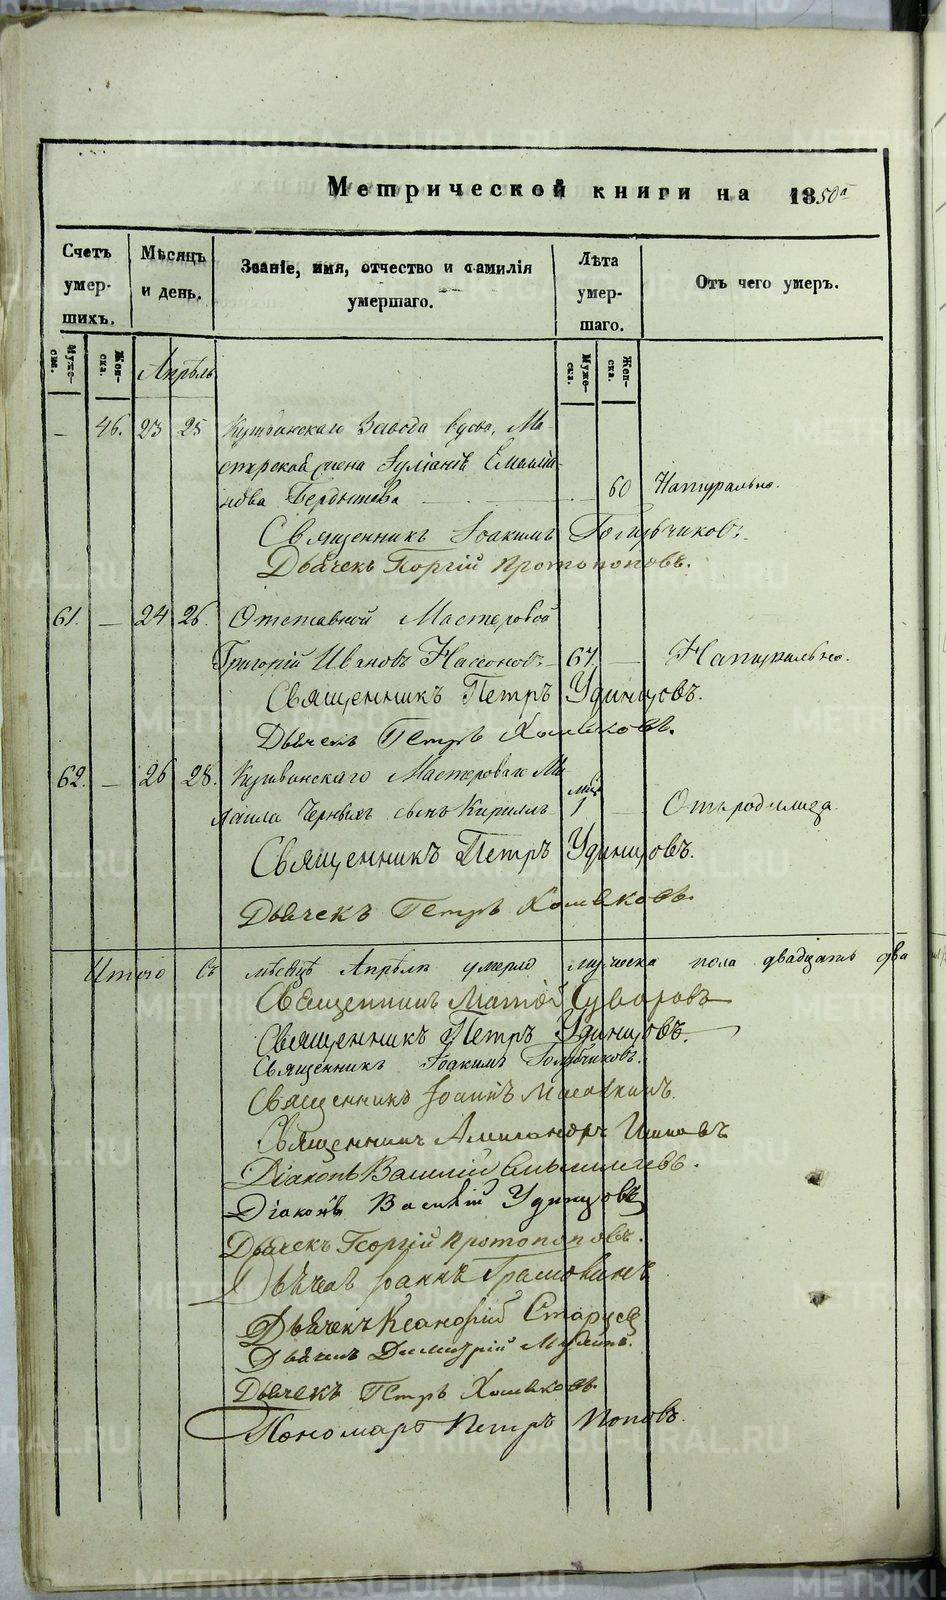 METRIKI.GASO-URAL.RU
Метрической книги на 1850й
Счетъ умершихъ.
Мѣсяцъ и день.
Званіе, имя, отчество и фамилія умершаго.
Лѣта умершаго.
Отъ чего умеръ.
Мужеска.
Женска.
Апрѣль
Мужеска.
Женска.
— 46. 23 25 Кушвинскаго Завода вдова, Ма-
стерской жена Іуліанія Емельянова
Бердышева 60 Натурально.
Священникъ Іоакимъ Голубчиковъ.
Дьячекъ Георгій Протопоповъ.
61. — 24 26. Отставной Мастеровой
Григорій Ивановъ 67 — Натурально.
Священникъ Петръ Удинцовъ.
Дьячекъ Петръ Хомяковъ.
62. — 26 28. Кушвинскаго Мастероваго Ми-
хаила Черныхъ сынъ Кириллъ 1 мѣс — Отъ родимца
Священникъ Петръ Удинцовъ.
Дьячекъ Петръ Хомяковъ.
Итого въ мѣсяцѣ Апрѣлѣ умерло мужеска пола двадцать два
Священникъ Матѳій Суворовъ
Священникъ Петръ Удинцовъ.
Священникъ Іоакимъ Голубчиковъ.
Священникъ Іоаннъ
Священникъ Александръ
Діаконъ Василій
Діаконъ Василій Удинцовъ
Дьячекъ Георгій Протопоповъ.
Дьячекъ Іоаннъ
Дьячекъ
Дьячекъ Димитрій
Дьячекъ Петръ Хомяковъ
Пономарь Петръ Поповъ.